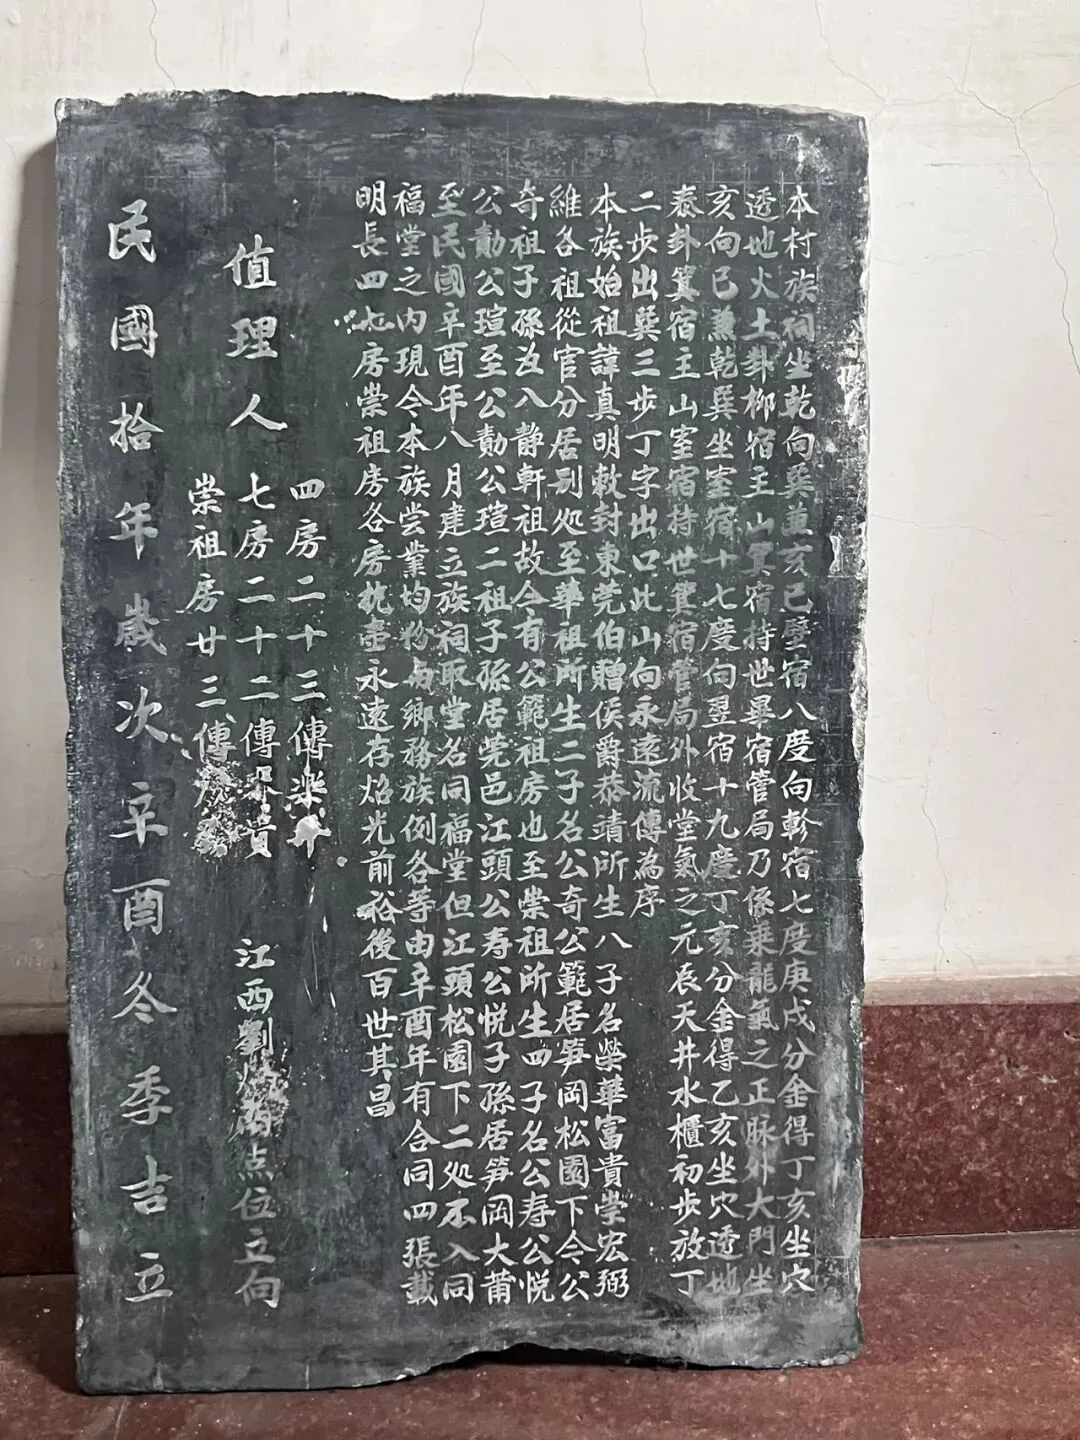 本村族祠坐乾向巽兼亥巳壁宿八度向軫宿七度庚戌分金得丁亥坐穴
透地火土卦柳宿主山箕宿持世畢宿管局乃係乘龍氣之正脉外大門坐
亥向巳兼乾巽坐室宿十七度向翌宿十九度丁亥分金得乙亥坐穴透地
泰卦箕宿主山室宿持世箕宿管局外收堂氣之元辰天井水櫃初步放丁
二步出巽三步丁字出口此山向永遠流傳為序
本族始祖諱真明敕封東莞伯贈侯爵恭靖所生八子名榮華富貴崇宏弼
維各祖從官分居别処至華祖所生二子名公奇公範居笋岡松園下今公
奇祖子孫為八静軒祖故今有公範祖房也至崇祖所生四子名公寿公悦
公勣公瑄至公勣公瑄二祖子孫居莞邑江頭公寿公悦子孫居笋岡大莆
至民國辛酉年八月建立族祠取堂名同福堂但江頭松園下二処不入同
福堂之内現今本族尝業均粉与鄉務族例各等由辛酉年有合同四張載
明長四七房崇祖房各房执壹永遠存炤光前裕後百世其昌
值理人
四房二十三傳
七房二十二傳貴
崇祖房廿三傳
江西劉点位立向
民國拾年歲次辛酉冬季吉立